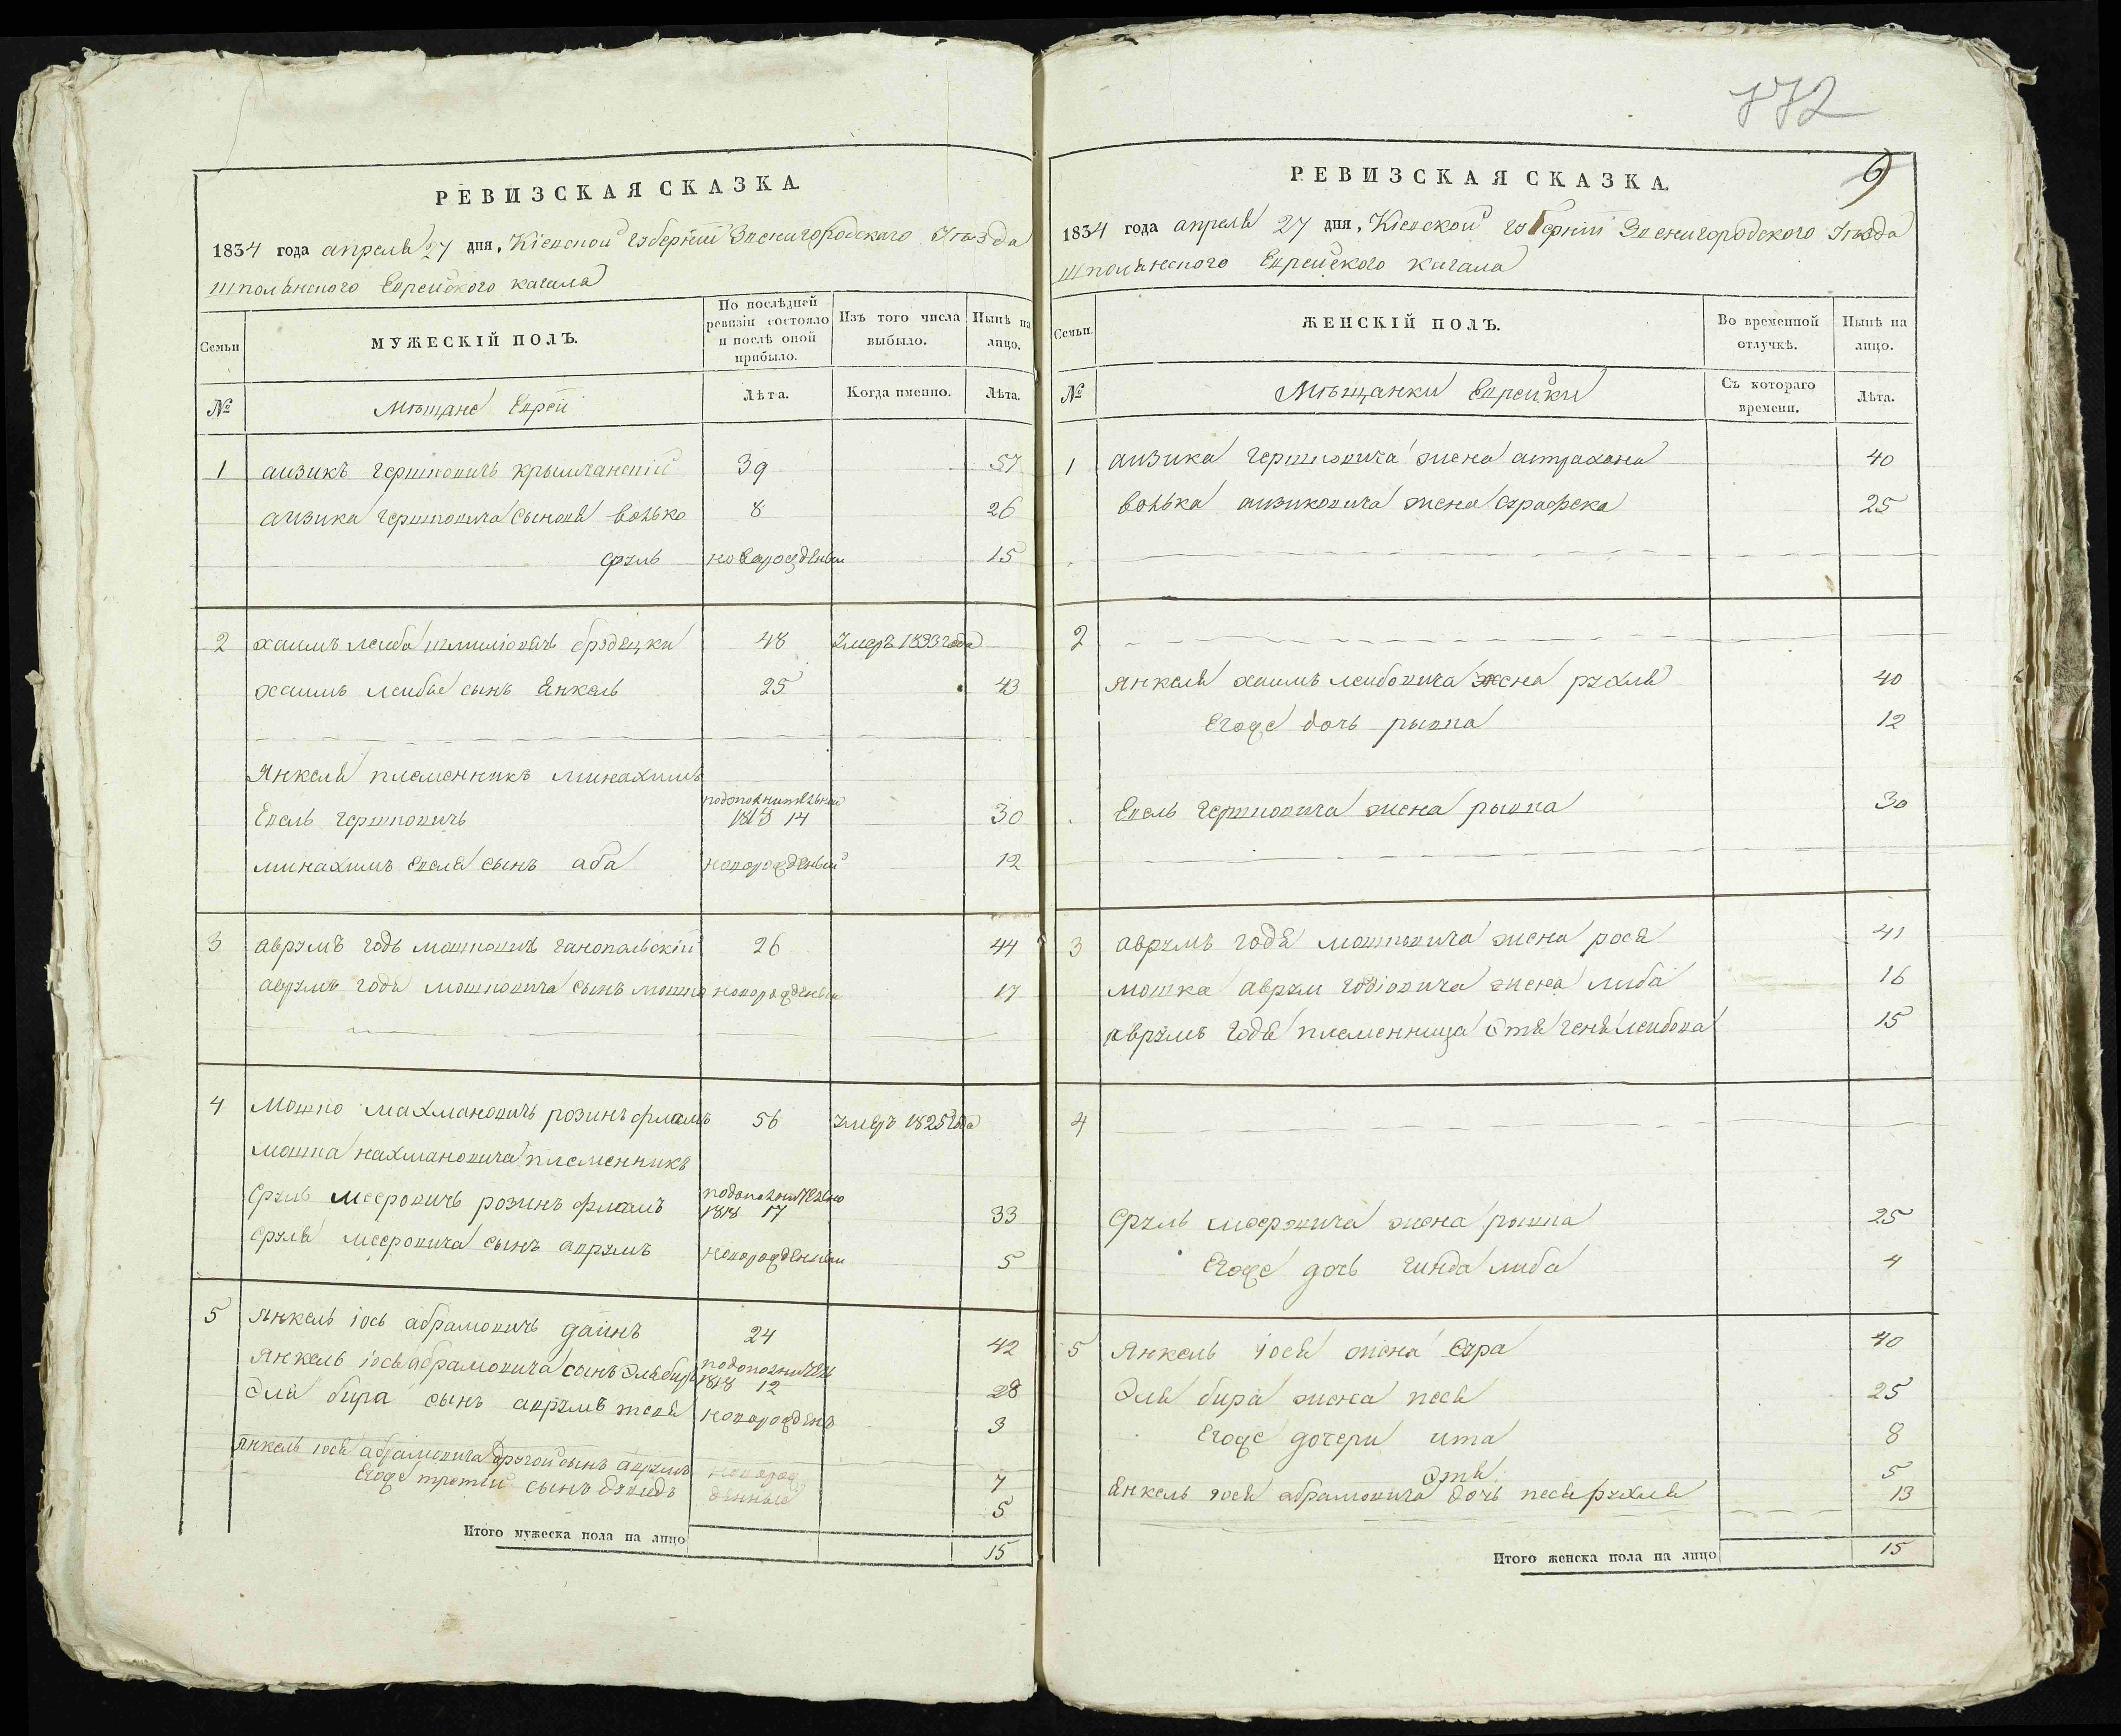 РЕВИЗСКАЯ СКАЗКА
1834 года апреля 27 дня, Кіевской губерніи Звенигородскаго Уѣзда
шполянского Еврейского кагала
Семьи
МУЖЕСКІЙ ПОЛЪ.
По послѣдней ревизіи состояло и послѣ оной прибыло.
Изъ того числа выбыло.
Нынѣ на лицо.
№
Мѣщане Евреи
Лѣта.
Когда именно.
Лѣта.
1 аизикъ гершковичъ крымчанскій 39 57
аизика гершковича сыновя волько 8 26
сруль новарожденый 15
2 хаимъ леиба шлиміовичъ бродецки 48 умеръ 1833 года
хаимъ леибы сынъ Янкель 25 43
Янкеля племенникъ минахимъ
Евель гершковичъ подополнительной 1818 14 30
минахимъ евеля сынъ аба новорожденый 12
3 аврумъ годь мошковичъ ганопольскій 26 44
аврумъ годя мошковича сынъ мошка новорожденый 17
4 Мошко нахмановичъ розинъ флямъ 56 умеръ 1825 года
мошка нахмановича племенникъ
Сруль мееровичъ розинъ флямъ подополнительно 1818 17 33
сруля меировича сынъ аврумъ новорожденый 5
5 Янкель іось абрамовичъ даинъ 24 42
Янкель іося абрамовича сынъ Эля бира подополнитель 1818 12 28
Эля бира сынъ аврумъ новорожденъ 3
Янкель іося абрамовича другой сынъ аврумъ новорож 7
Егоже третій сынъ давидъ денный 5
Итого мужеска пола на лицо 15
772
6
РЕВИЗСКАЯ СКАЗКА.
1834 года апреля 27 дня, Кіевской губерніи Звенигородского Уѣзда
шполянского Еврейского кагала
Семьи.
ЖЕНСКІЙ ПОЛЪ.
Во временной отлучкѣ.
Нынѣ на лицо.
№
Мѣщанки Еврейки
Съ котораго времени.
Лѣта.
1 аизика гершковича жена 40
волька аизиковича жена 25
2
Янкеля хаимъ леибовича жена рухля 40
Егоже дочь рывка 12
Евель гершковича жена рывка 30
3 аврумъ годя мошковича жена рося 41
мошка аврум годіовича жена либа 16
аврумъ годя племенница Этя геня леибова 15
4
Сруль мееровича жена рывка 25
Егоже дочь гинда либа 4
5 Янкель іося жена Сура 40
Эля бира жена песя 25
Егоже дочери ита 8
Этя 5
Янкель іося абрамовича дочь песя рухля 13
Итого женска пола на лицо 15